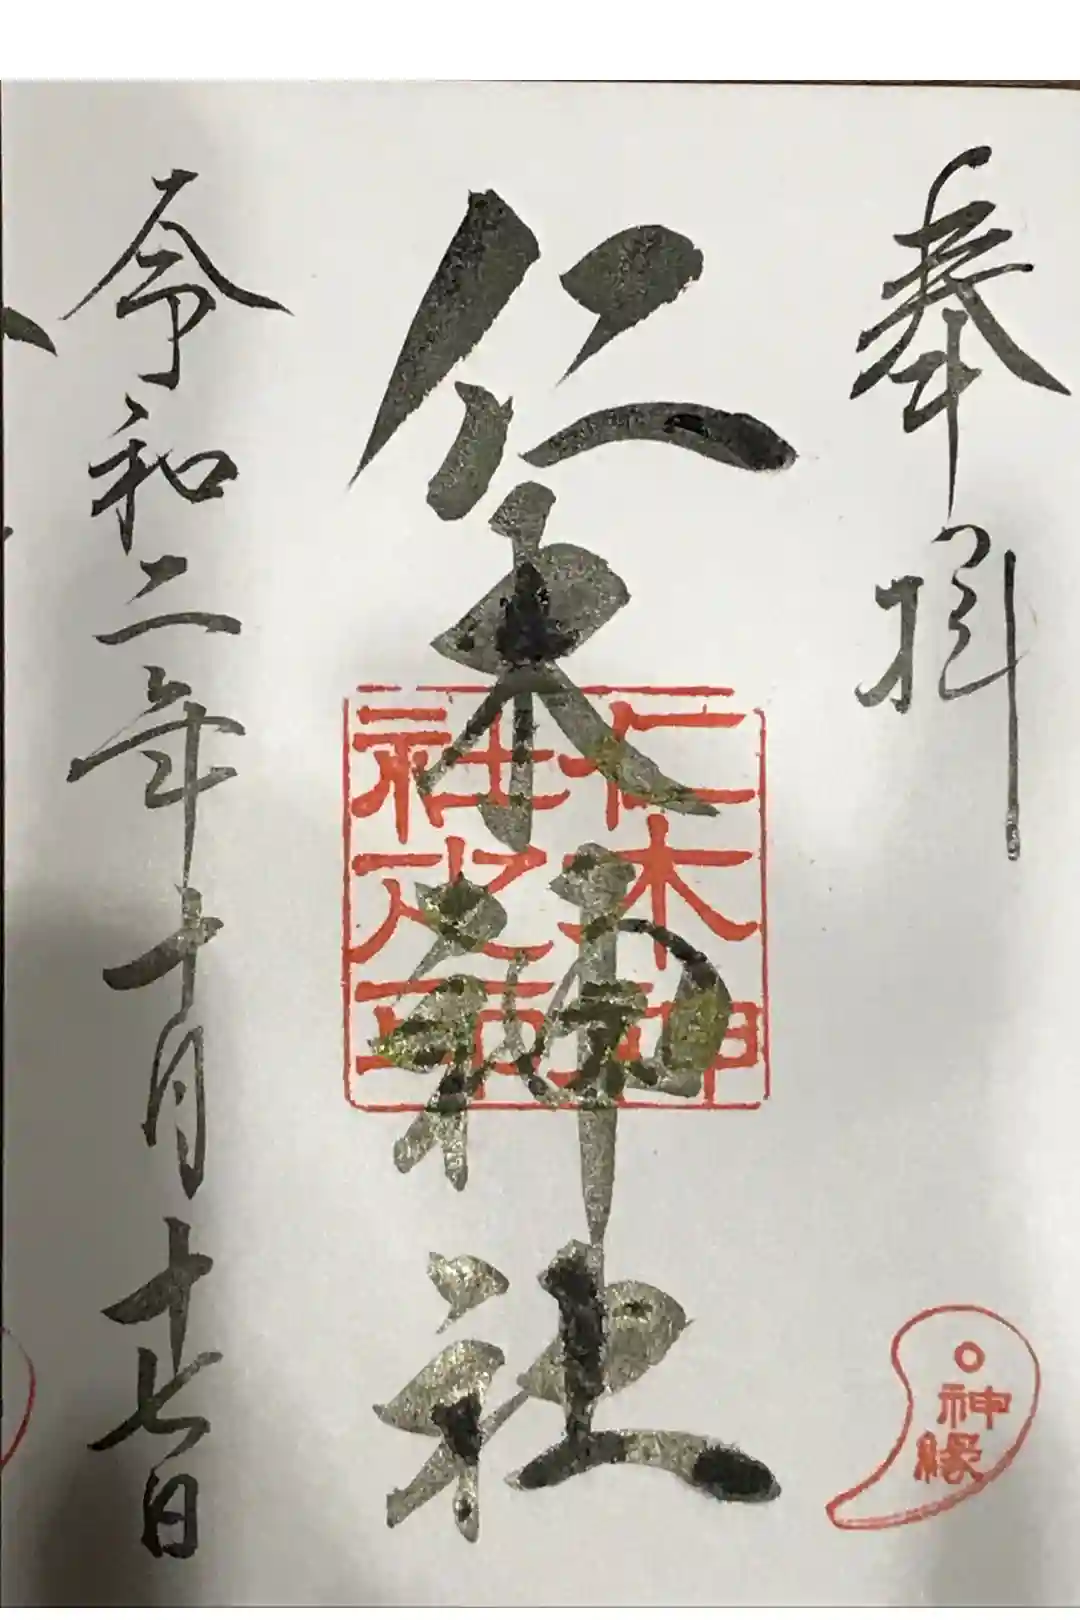 奉拝
神縁
仁木神社
仁木神
社之印
令和二年十月十七日